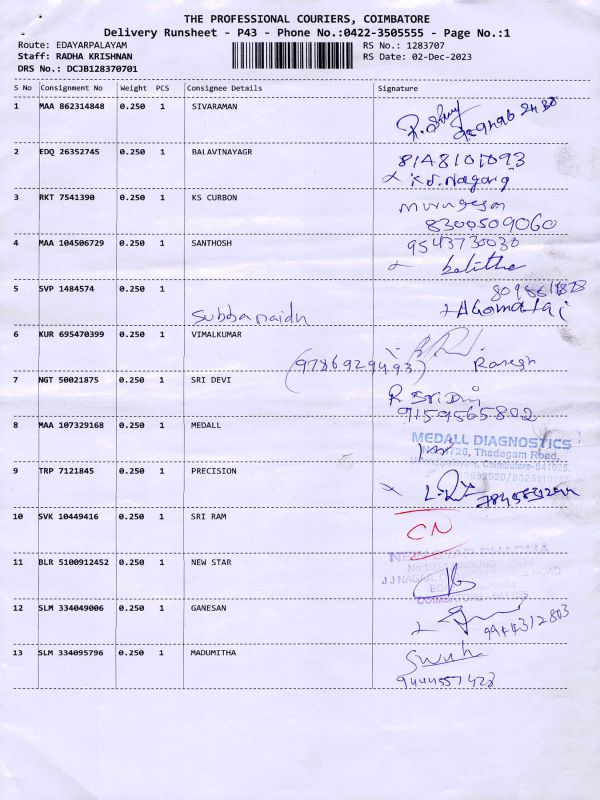 THE PROFESSIONAL COURIERS, COIMBATORE
Delivery Runsheet - P43 - Phone No.:0422-3505555 - Page No.:1
Route: EDAYARPALAYAM
Staff: RADHA KRISHNAN
DRS No.: DCJB128370701
RS No.: 1283707
RS Date: 02-Dec-2023
S No Consignment No Weight PCS Consignee Details Signature
1 MAA 862314848 0.250 1 SIVARAMAN
2 EDQ 26352745 0.250 1 BALAVINAYAGR
8148101093
3 RKT 7541390 0.250 1 KS CURBON
murugesan
8300509060
4 MAA 104506729 0.250 1 SANTHOSH
9543730030
5 SVP 1484574 0.250 1
subba naidu
6 KUR 695470399 0.250 1 VIMALKUMAR
(9786929493) Ramesh
7 NGT 50021875 0.250 1 SRI DEVI
9159565802
8 MAA 107329168 0.250 1 MEDALL
MEDALL DIAGNOSTICS
Thadagam Road,
Coimbatore-641025.
9 TRP 7121845 0.250 1 PRECISION
10 SVK 10449416 0.250 1 SRI RAM
CN
11 BLR 5100912452 0.250 1 NEW STAR
NEW STAR PHARMA
J J NAGAR, ROAD
COIMBATORE - 641 025
12 SLM 334049006 0.250 1 GANESAN
9944312803
13 SLM 334095796 0.250 1 MADUMITHA
9444557428